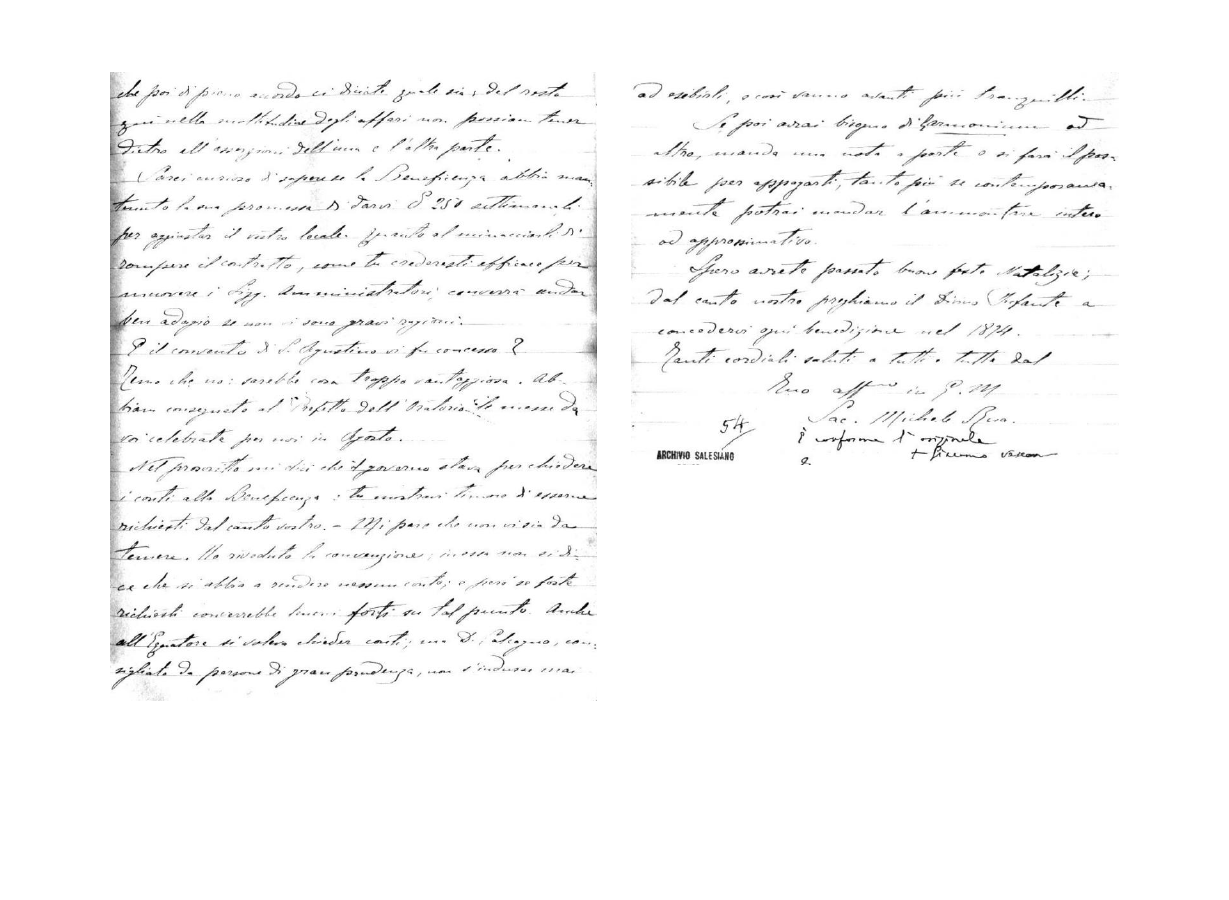 che poi di pieno accordo ci diciate quale sia; del resto
qui nella moltitudine degli affari non possiam tener
dietro all'esigenze dell'una e l'altra parte.
Sarei curioso di sapere se la Beneficenza abbia man-
tenuto la sua promessa di darvi 250 settimanali
per aggiustar il vostro locale. Quanto al minacciarli di
rompere il contratto, come tu crederesti efficace per
muovere i Sigg. Amministratori, converrà andar
ben adagio se non vi sono gravi ragioni.
E il convento di S. Agostino vi fu concesso?
Temo che no: sarebbe cosa troppo vantaggiosa. Ab-
biam consegnato al Prefetto dell'Oratorio le messe da
voi celebrate per noi in Agosto.
Nel proscritto mi dici che il governo stava per chiedere
i conti alla Beneficenza; tu mostravi timore di esserne
richiesti dal canto vostro. - Mi pare che non vi sia da
temere. Ho riveduto la convenzione; in essa non si di-
ce che si abbia a rendere nessun conto; e però se foste
richiesti converrebbe tenervi forti su tal punto. Anche
all'Equatore si voleva chieder conti; ma D. Calcagno, con-
sigliato da persone di gran prudenza, non s'indusse mai
ad esibirli, e così vanno avanti più tranquilli.
Se poi avrai bisogno di harmonium od
altro, manda una nota a parte e si farà il pos-
sibile per appagarti, tanto più se contemporanea-
mente potrai mandar l'ammontare intero
od approssimativo.
Spero avrete passato buone feste Natalizie;
dal canto nostro preghiamo il Divino Infante a
concedervi ogni benedizione nel 1894.
Tanti cordiali saluti a tutti e tutte dal
Tuo aff.mo in G. M
Sac. Michele Rua.
54
È conforme l'originale
ARCHIVIO SALESIANO
2.
+ Giacomo